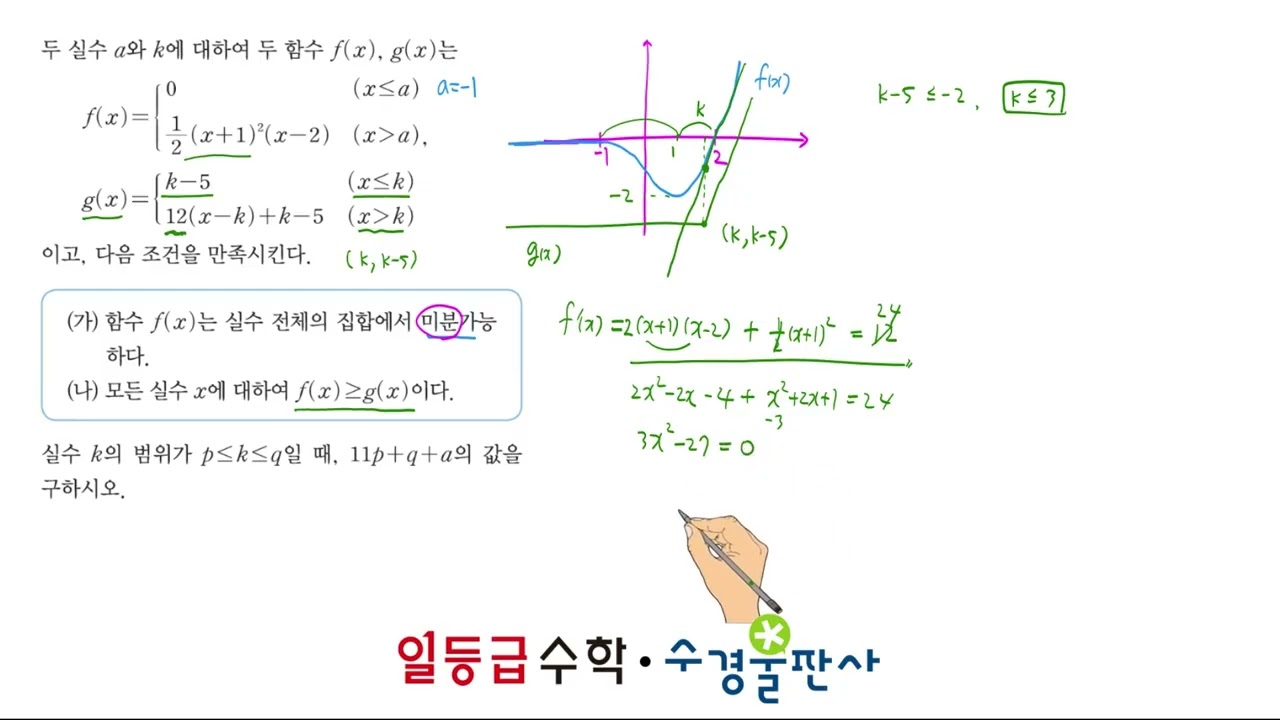 두 실수 a와 k에 대하여 두 함수 f(x), g(x)는
f(x)={0 (x≤a) a=-1
1/2(x+1)²(x-2) (x>a),
g(x)={k-5 (x≤k)
12(x-k)+k-5 (x>k)
이고, 다음 조건을 만족시킨다. (k, k-5)
(가) 함수 f(x)는 실수 전체의 집합에서 미분가능
하다.
(나) 모든 실수 x에 대하여 f(x)≥g(x)이다.
실수 k의 범위가 p≤k≤q일 때, 11p+q+a의 값을
구하시오.
f(x)
k
-1 1 2
-2
(k, k-5)
g(x)
k-5 ≤ -2, k ≤ 3
f'(x) = 2(x+1)(x-2) + 1/2(x+1)² = 12 24
2x²-2x-4 + x²+2x+1 = 24
-3
3x²-27 = 0
일등급 수학 • 수경출판사